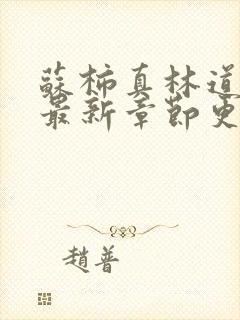 蘇柿真林道
最新章節更
趙普